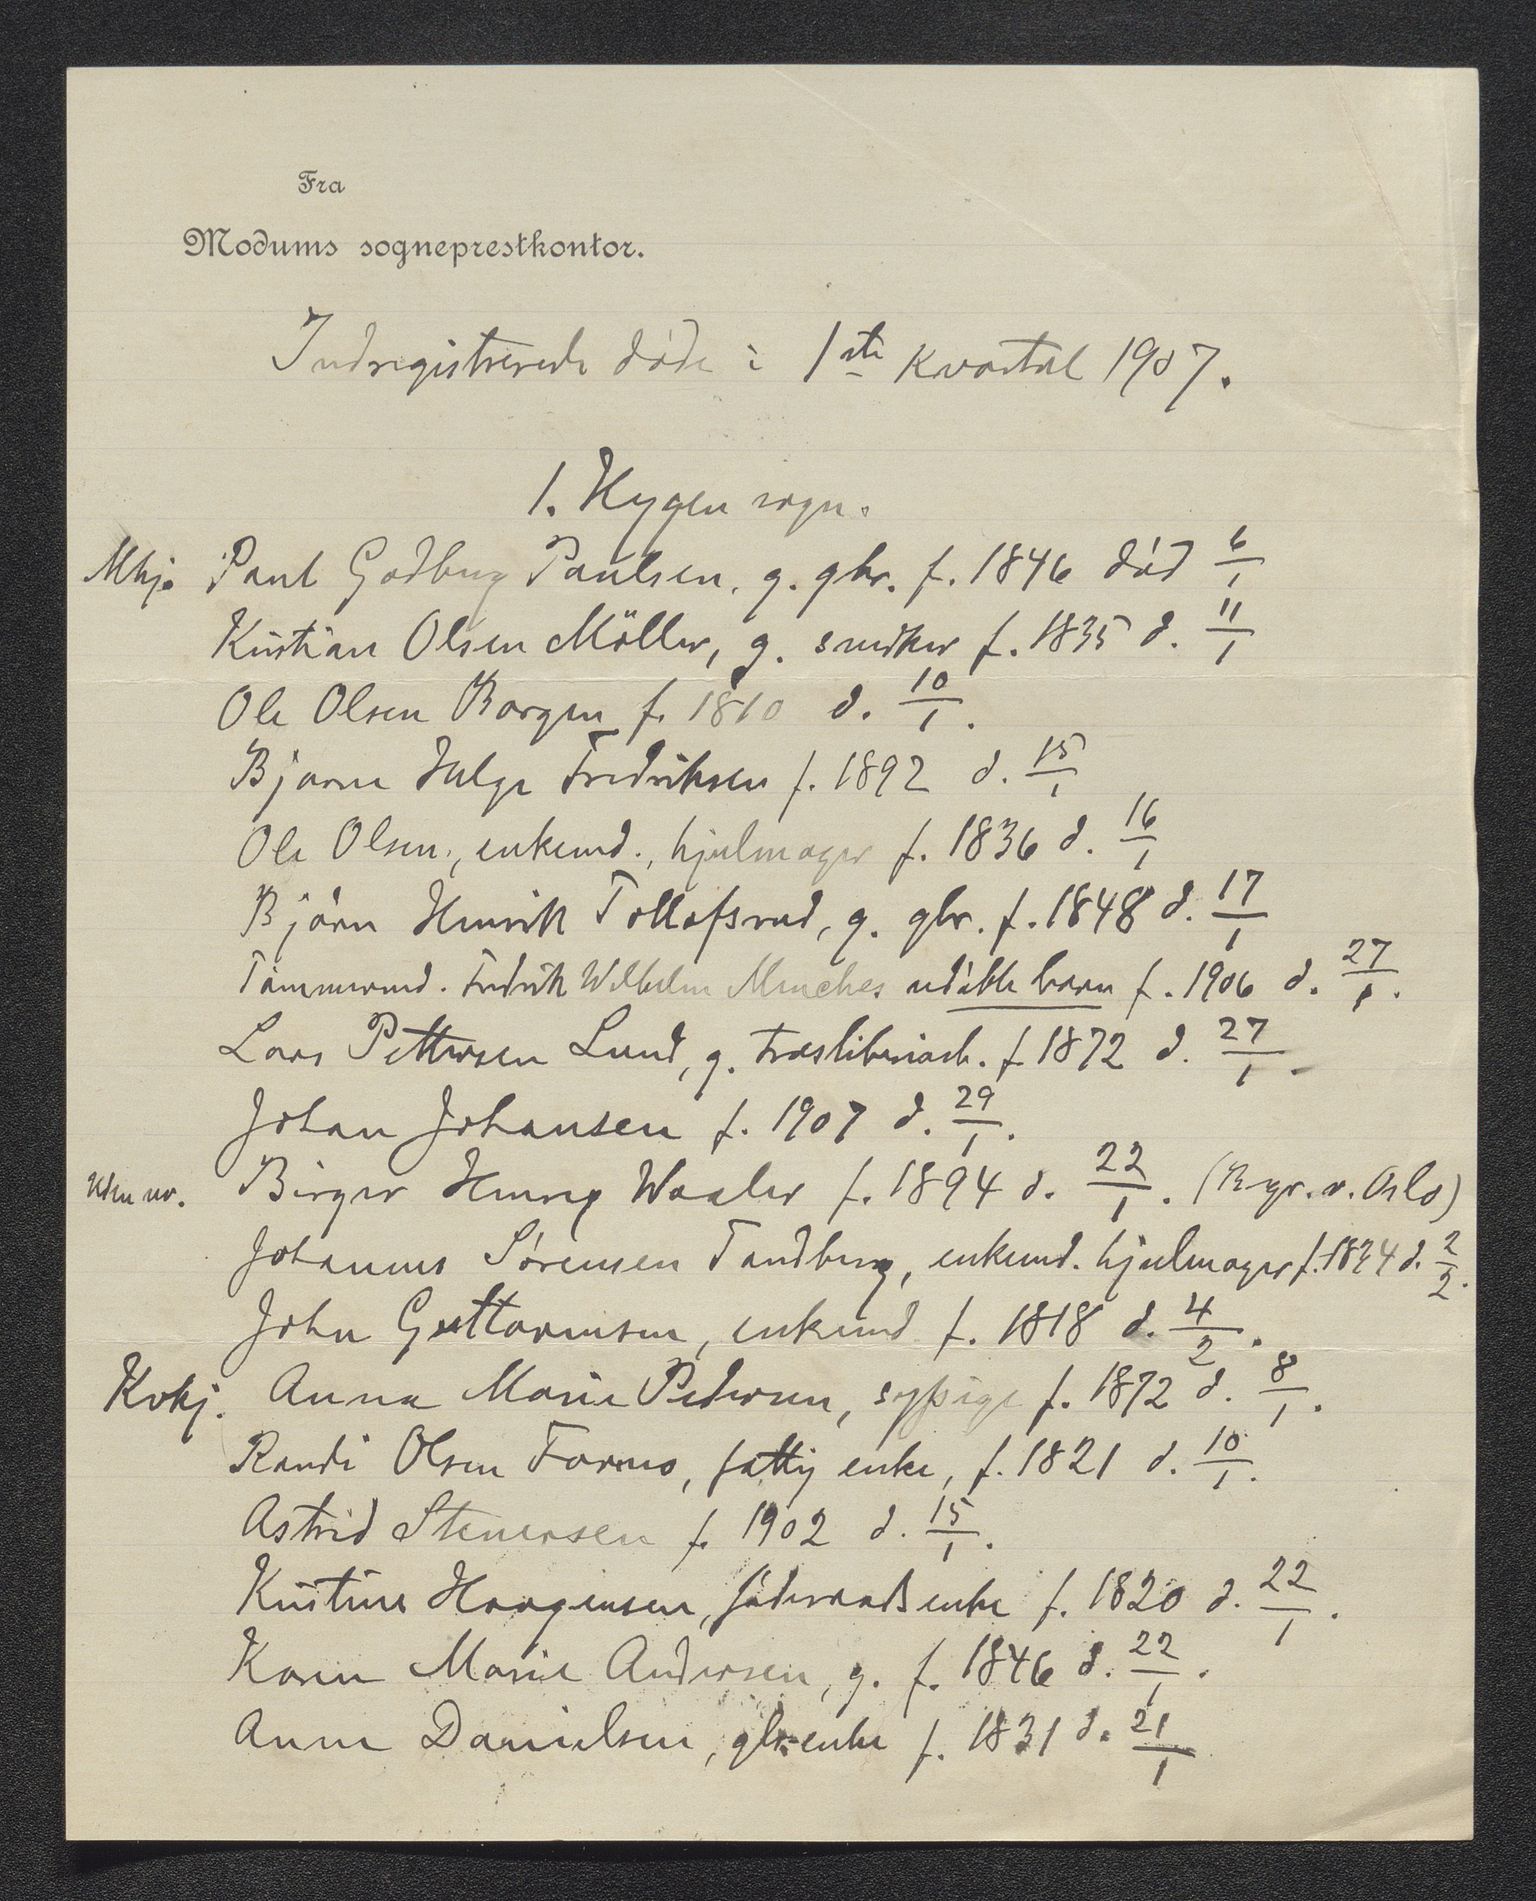 Fra
Modums sogneprestkontor.
Indregistrerede døde i 1ste kvartal 1907.
1. Hygen sogn.
Mkj. Paul Godbug Paulsen, g. gbr. f. 1846 død 6/1
Kristian Olsen Möller, g. snedker f. 1835 d. 11/1
Ole Olsen Borgen f. 1810 d. 10/1.
Bjarne Helge Fredriksen f. 1892 d. 15/1
Ole Olsen, enkemd., hjulmager f. 1836 d. 16/1
Bjørn Henrik Tollofsrud, g. gbr. f. 1848 d. 17/1
Tømmermd. Fredrik Wilhelm Menches udøbte barn f. 1906 d. 27/1.
Lars Pettersen Lund, g. træsliberiarb. f. 1872 d. 27/1.
Johan Johansen f. 1907 d. 29/1.
Uden nr. Birger Henry Waaler f. 1894 d. 22/1. (Bgr. v. Oslo)
Johannes Sørensen Tandberg, enkemd. hjulmager f. 1824 d. 2/2.
John Guttormsen, enkemd f. 1818 d. 4/2.
Kvkj. Anna Marie Pedersen, sypige f. 1872 d. 8/1.
Randi Olsen Formo, fattig enke, f. 1821 d. 10/1.
Astrid Stenersen f. 1902 d. 15/1.
Kristine Haagensen, føderaads enke f. 1820 d. 22/1.
Karen Marie Andersen, g. f. 1846 d. 22/1.
Anne Danielsen, gbr. enke f. 1831 d. 21/1